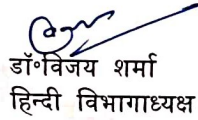 डॉ॰विजय शर्मा
हिन्दी विभागाध्यक्ष